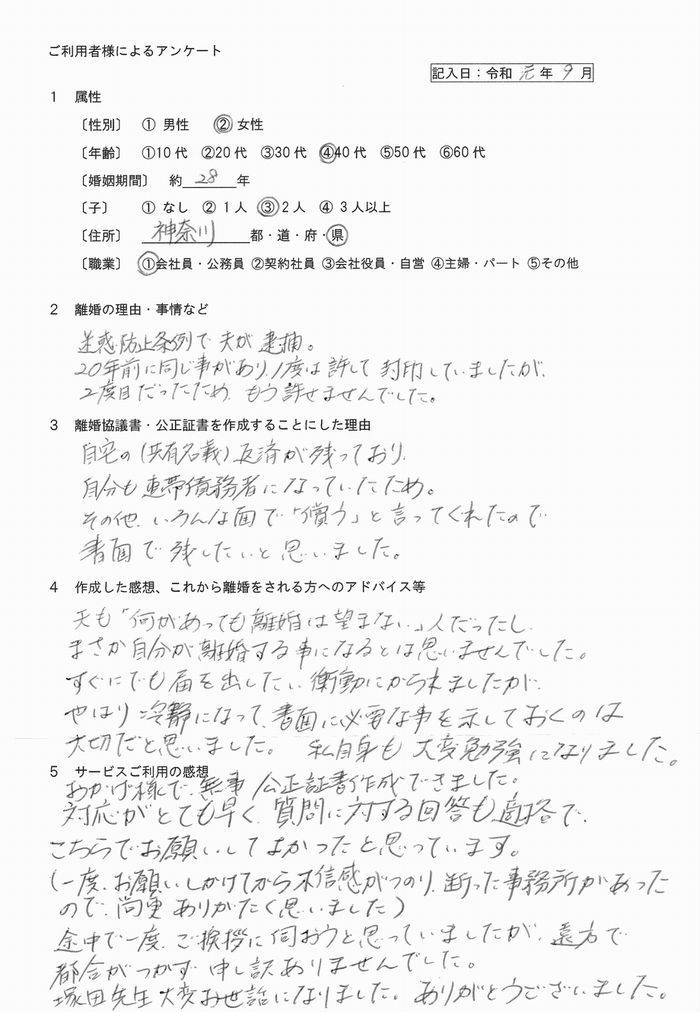 ご利用者様によるアンケート
記入日：令和 元 年 9 月
1 属性
〔性別〕 ① 男性 ② 女性
〔年齢〕 ①10代 ②20代 ③30代 ④40代 ⑤50代 ⑥60代
〔婚姻期間〕 約 28 年
〔子〕 ① なし ② 1人 ③ 2人 ④ 3人以上
〔住所〕 神奈川 都・道・府・県
〔職業〕 ①会社員・公務員 ②契約社員 ③会社役員・自営 ④主婦・パート ⑤その他
2 離婚の理由・事情など
迷惑防止条例で夫が逮捕。
20年前に同じ事があり、1度は許して封印していましたが、
2度目だったため、もう許せませんでした。
3 離婚協議書・公正証書を作成することにした理由
自宅の(共有名義)返済が残っており、
自分も連帯債務者になっていたため。
その他、いろんな面で「償う」と言ってくれたので
書面で残したいと思いました。
4 作成した感想、これから離婚をされる方へのアドバイス等
夫も「何があっても離婚は望まない」人だったし、
まさか自分が離婚する事になるとは思いませんでした。
すぐにでも届を出したい衝動にかられましたが、
やはり冷静になって、書面に必要な事を示しておくのは
大切だと思いました。 私自身も大変勉強になりました。
5 サービスご利用の感想
おかげ様で、無事 公正証書作成できました。
対応がとても早く、質問に対する回答も適格で、
こちらでお願いしてよかったと思っています。
(一度、お願いしかけてから不信感がつのり、断った事務所があった
ので、尚更ありがたく思いました)
途中で一度、ご挨拶に伺おうと思っていましたが、遠方で
都合がつかず 申し訳ありませんでした。
塚田先生 大変お世話になりました。ありがとうございました。